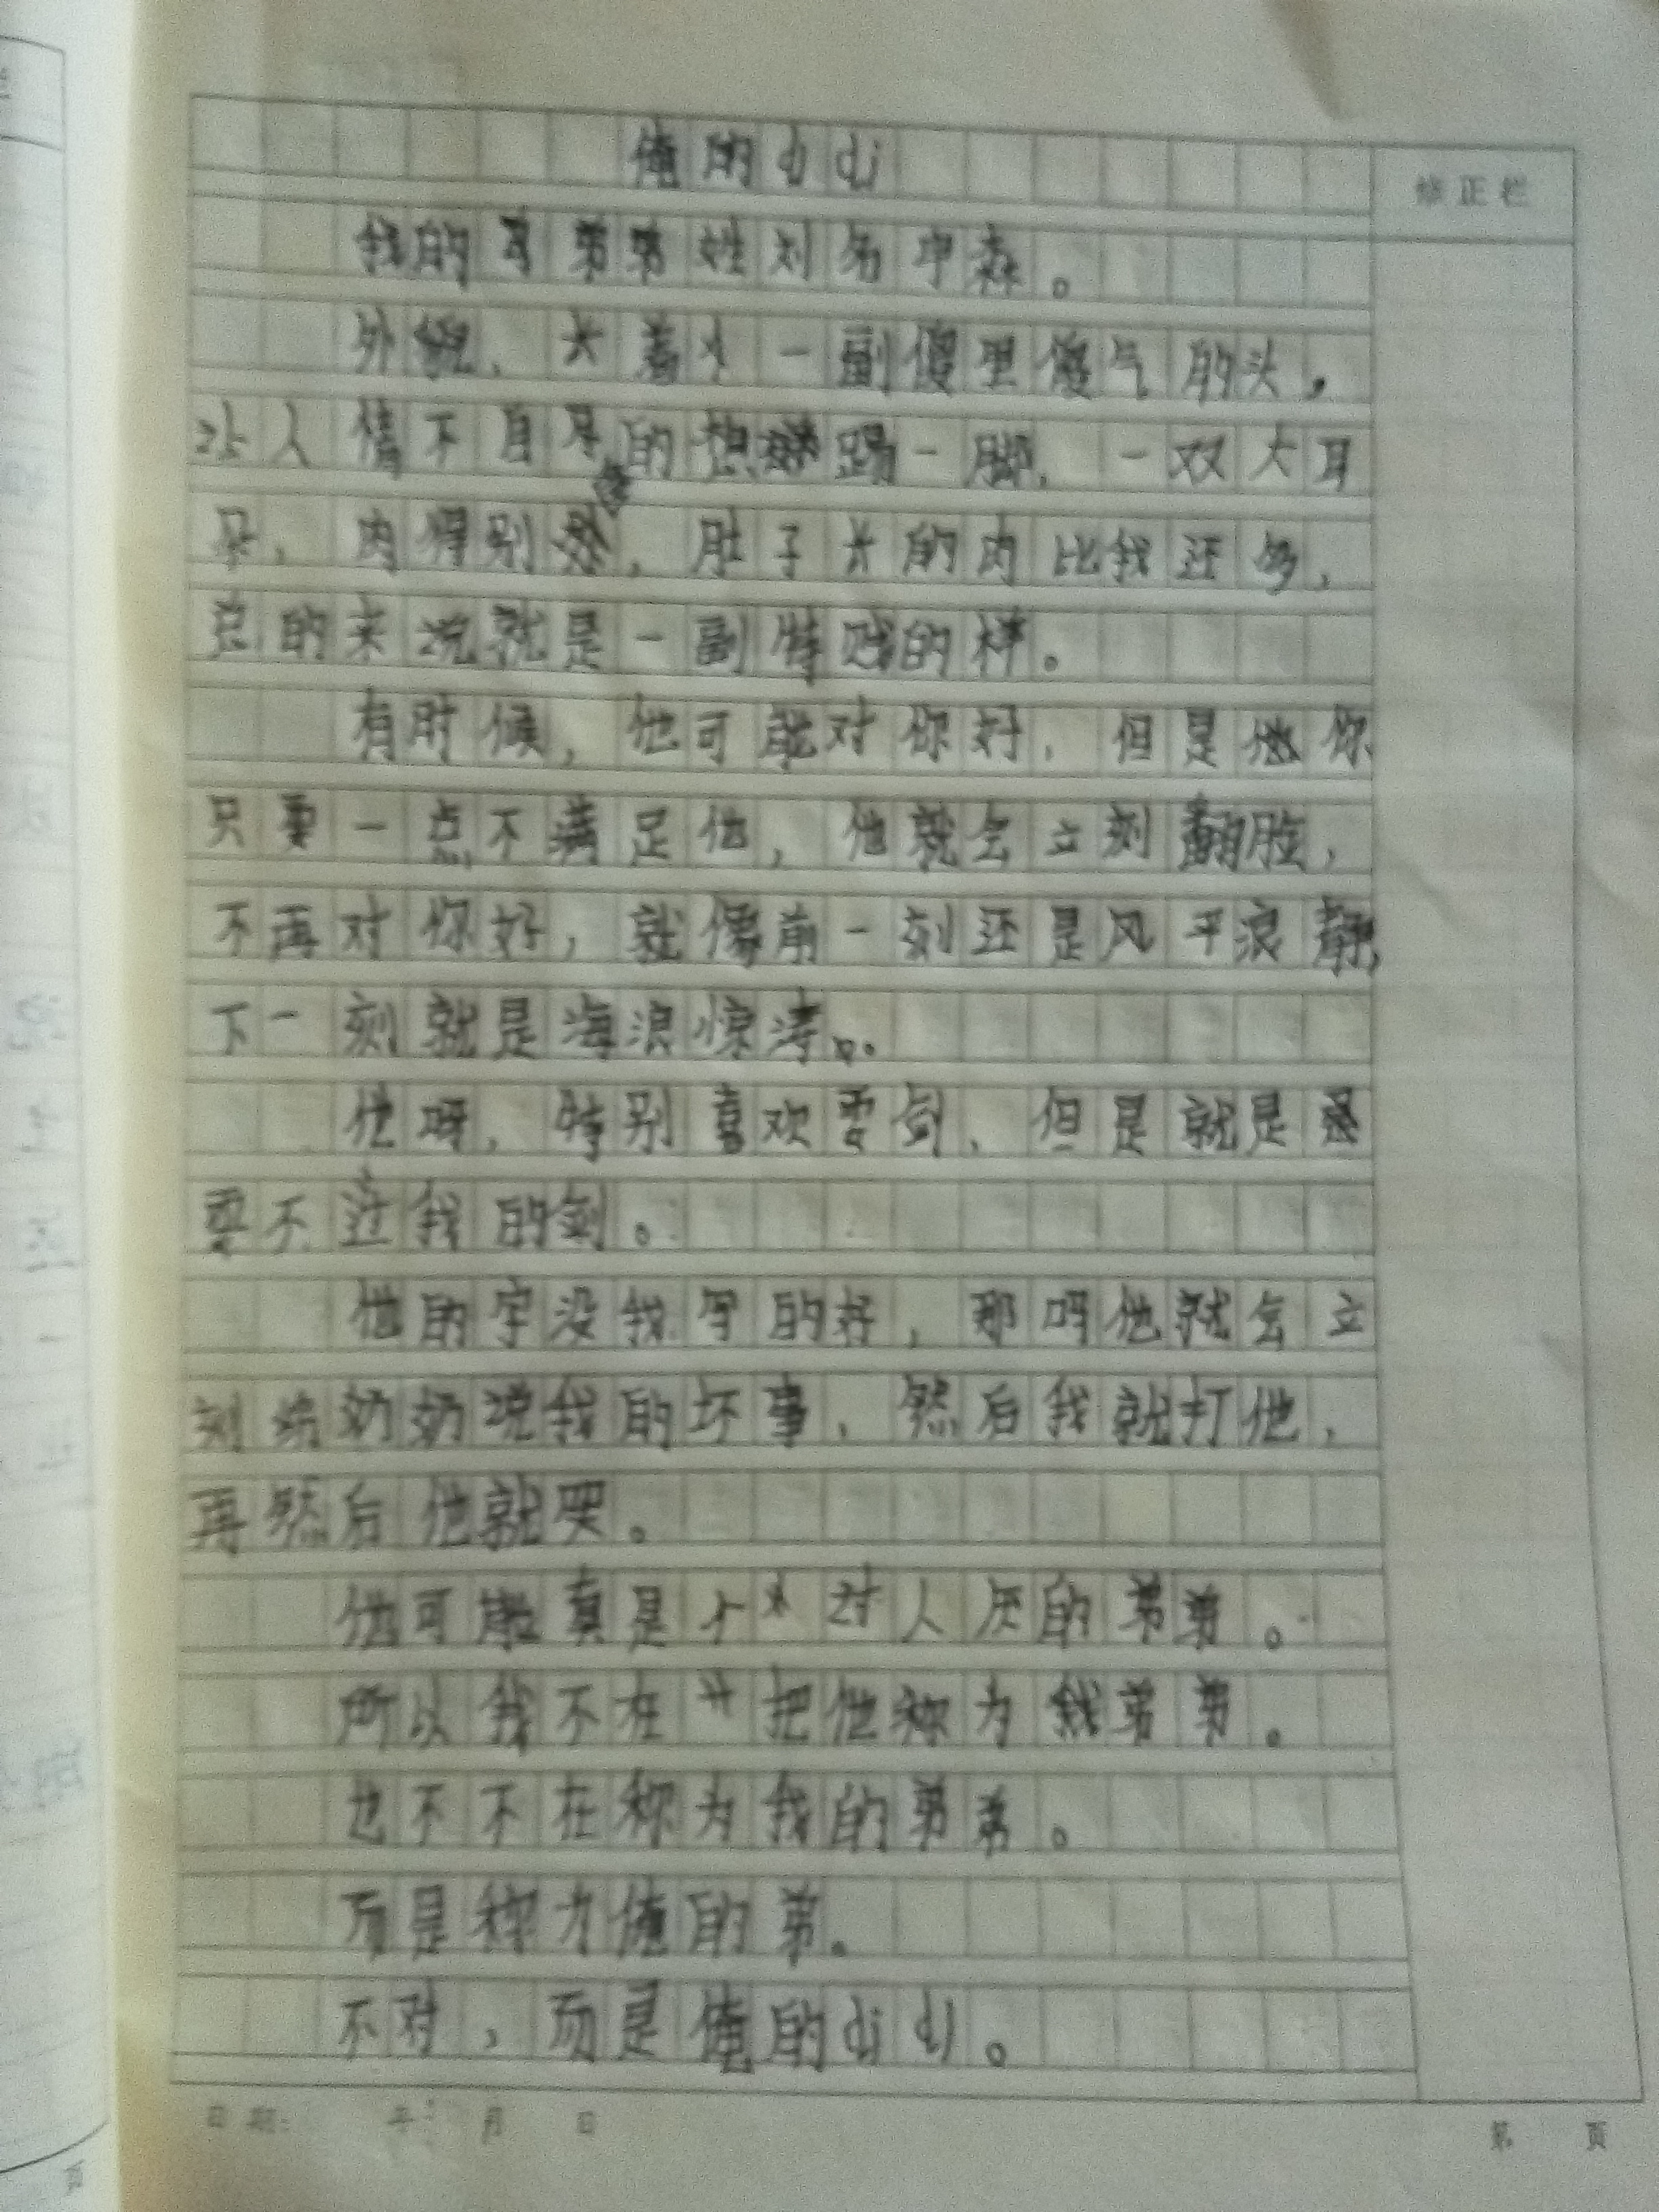 俺的djdj
我的弟弟姓刘名中森。
外貌，长着一副傻里傻气的头，
让人情不自的想踢一脚，一双大耳
朵，肉得别，肚子长的肉比我还多，
总的来说就是一副特贱的样。
有时候，他可能对你好，但是你
只要一点不满足他，他就会立刻翻脸，
不再对你好，就像前一刻还是风平浪静，
下一刻就是海浪惊涛。
他呀，特别喜欢耍剑，但是就是
耍不过我的剑。
他的字没我写的好，那吗他就会立
刻给奶奶说我的坏事，然后我就打他，
再然后他就哭。
他可能真是个讨人厌的弟弟。
所以我不在把他称为我弟弟。
也不不在称为我的弟弟。
而是称为俺的弟。
不对，而是俺的djdj。
修正栏
日期： 年 月 日
第 页